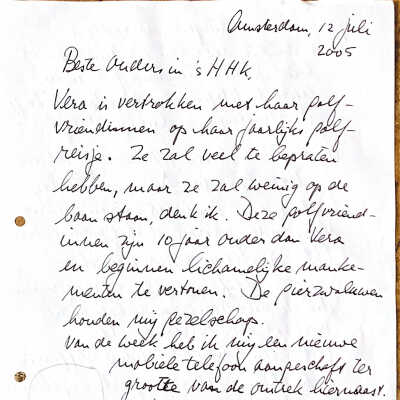 Amsterdam, 12 juli
2005
Beste Ouders in 's HHK,
Vera is vertrokken met haar golf-
vriendinnen op haar jaarlijks golf-
reisje. Ze zal veel te bepraten
hebben, maar ze zal weinig op de
baan staan, denk ik. Deze golfvriend-
innen zijn 10 jaar ouder dan Vera
en beginnen lichamelijke manke-
menten te vertonen. De gierzwaluwen
houden mij gezelschap.
Van de week heb ik mij een nieuwe
mobiele telefoon aangeschaft ter
grootte van de omtrek hiernaast.